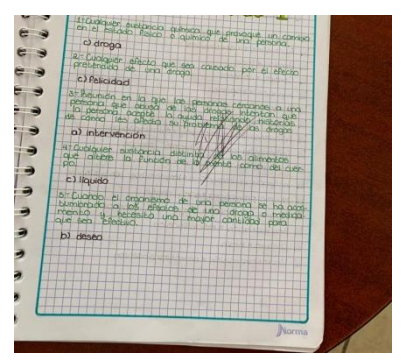 1-Cualquier sustancia química que provoque un cambio
en el estado físico o químico de una persona.
c) droga
2-Cualquier efecto que sea causado por el efecto
pretendido de una droga.
c) Felicidad
3-Reunión en la que las personas cercanas a una
persona que abusa de las drogas intentan que
la persona acepte la ayuda relatando historias
de cómo les afecta su problema de las drogas
a) intervención
4-Cualquier sustancia distinta de los alimentos
que altere la función de la mente como del cuer-
po.
c) líquido
5-Cuando el organismo de una persona se ha acos-
tumbrado a los efectos de una droga o medica-
mento y necesita una mayor cantidad para
que sea efectivo.
b) deseo
Norma